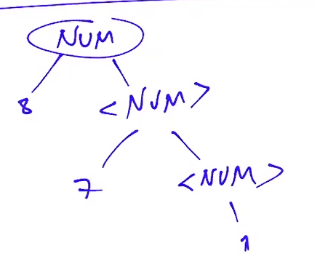 NUM
8 <NUM>
7 <NUM>
1